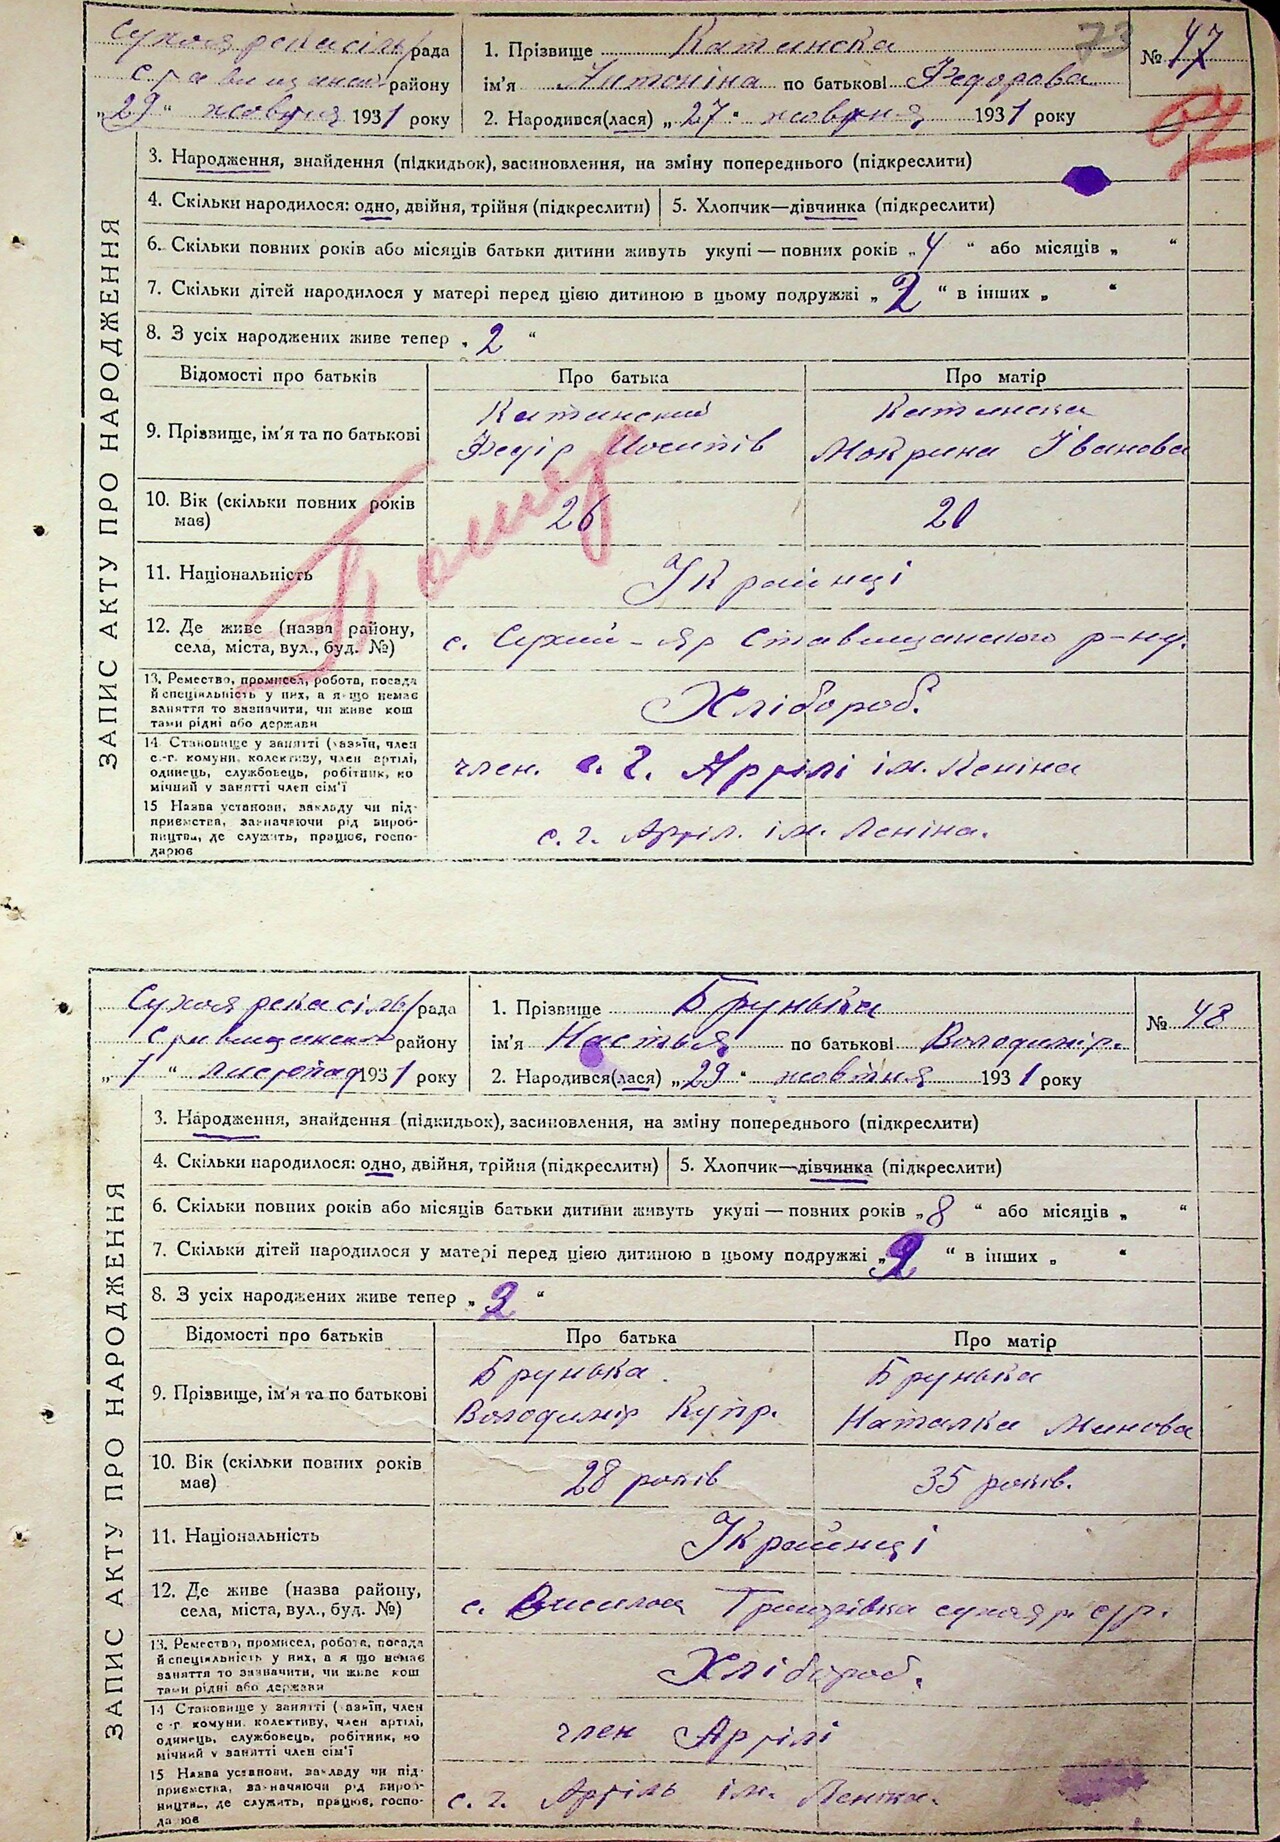 Сухоярська сіль/рада
Ставищанськ району
„29“ жовтня 1931 року
1. Прізвище Катинска
ім'я Антоніна по батькові Федорова
2. Народився(лася) „27“ жовтня 1931 року
73
№ 47
ЗАПИС АКТУ ПРО НАРОДЖЕННЯ
3. Народження, знайдення (підкидьок), засиновлення, на зміну попереднього (підкреслити)
4. Скільки народилося: одно, двійня, трійня (підкреслити)
5. Хлопчик—дівчинка (підкреслити)
6. Скільки повних років або місяців батьки дитини живуть укупі — повних років „4“ або місяців „ “
7. Скільки дітей народилося у матері перед цією дитиною в цьому подружжі „2“ в інших „ “
8. З усіх народжених живе тепер „2“
Відомості про батьків
Про батька
Про матір
9. Прізвище, ім'я та по батькові
Катинский
Федір Йосипів
Катинска
Мокрина Іванова
10. Вік (скільки повних років має)
26
20
11. Національність
Українці
12. Де живе (назва району,
села, міста, вул., буд. №)
с. Сухий-Яр Ставищанського р-ну.
13. Ремество, промисел, робота, посада
й спеціяльність у них, а якщо немає
заняття то зазначити, чи живе кош
тами рідні або держави
Хлібороб.
14 Становище у занятті (хазяїн, член
с.-г. комуни, колективу, член артілі,
одинець, службовець, робітник, по
мічний у занятті член сім'ї
член. с. г. Артілі ім. Леніна
15 Назва установи, закладу чи під-
приємства, зазначаючи рід вироб-
ництва, де служить, працює, госпо-
дарює
с. г. Артіл. ім. Леніна.
Помер
Сухоярська сіль/рада
Ставищанськ району
„1“ листопад 1931 року
1. Прізвище Брунька
ім'я Настья по батькові Володимір.
2. Народився(лася) „29“ жовтня 1931 року
№ 48
ЗАПИС АКТУ ПРО НАРОДЖЕННЯ
3. Народження, знайдення (підкидьок), засиновлення, на зміну попереднього (підкреслити)
4. Скільки народилося: одно, двійня, трійня (підкреслити)
5. Хлопчик—дівчинка (підкреслити)
6. Скільки повних років або місяців батьки дитини живуть укупі — повних років „8“ або місяців „ “
7. Скільки дітей народилося у матері перед цією дитиною в цьому подружжі „2“ в інших „ “
8. З усіх народжених живе тепер „ “
Відомості про батьків
Про батька
Про матір
9. Прізвище, ім'я та по батькові
Брунька.
Володимір Купр.
Брунька
Наталка Минова
10. Вік (скільки повних років має)
28 років
35 років.
11. Національність
Українці
12. Де живе (назва району,
села, міста, вул., буд. №)
с. Василоа Григорівка сухояр. с/р.
13. Ремество, промисел, робота, посада
й спеціяльність у них, а якщо немає
заняття то зазначити, чи живе кош
тами рідні або держави
Хлібороб.
14 Становище у занятті (хазяїн, член
с.-г. комуни, колективу, член артілі,
одинець, службовець, робітник, по
мічний у занятті член сім'ї
член Артілі
15 Назва установи, закладу чи під-
приємства, зазначаючи рід вироб-
ництва, де служить, працює, госпо-
дарює
с. г. Артіль ім. Леніна.